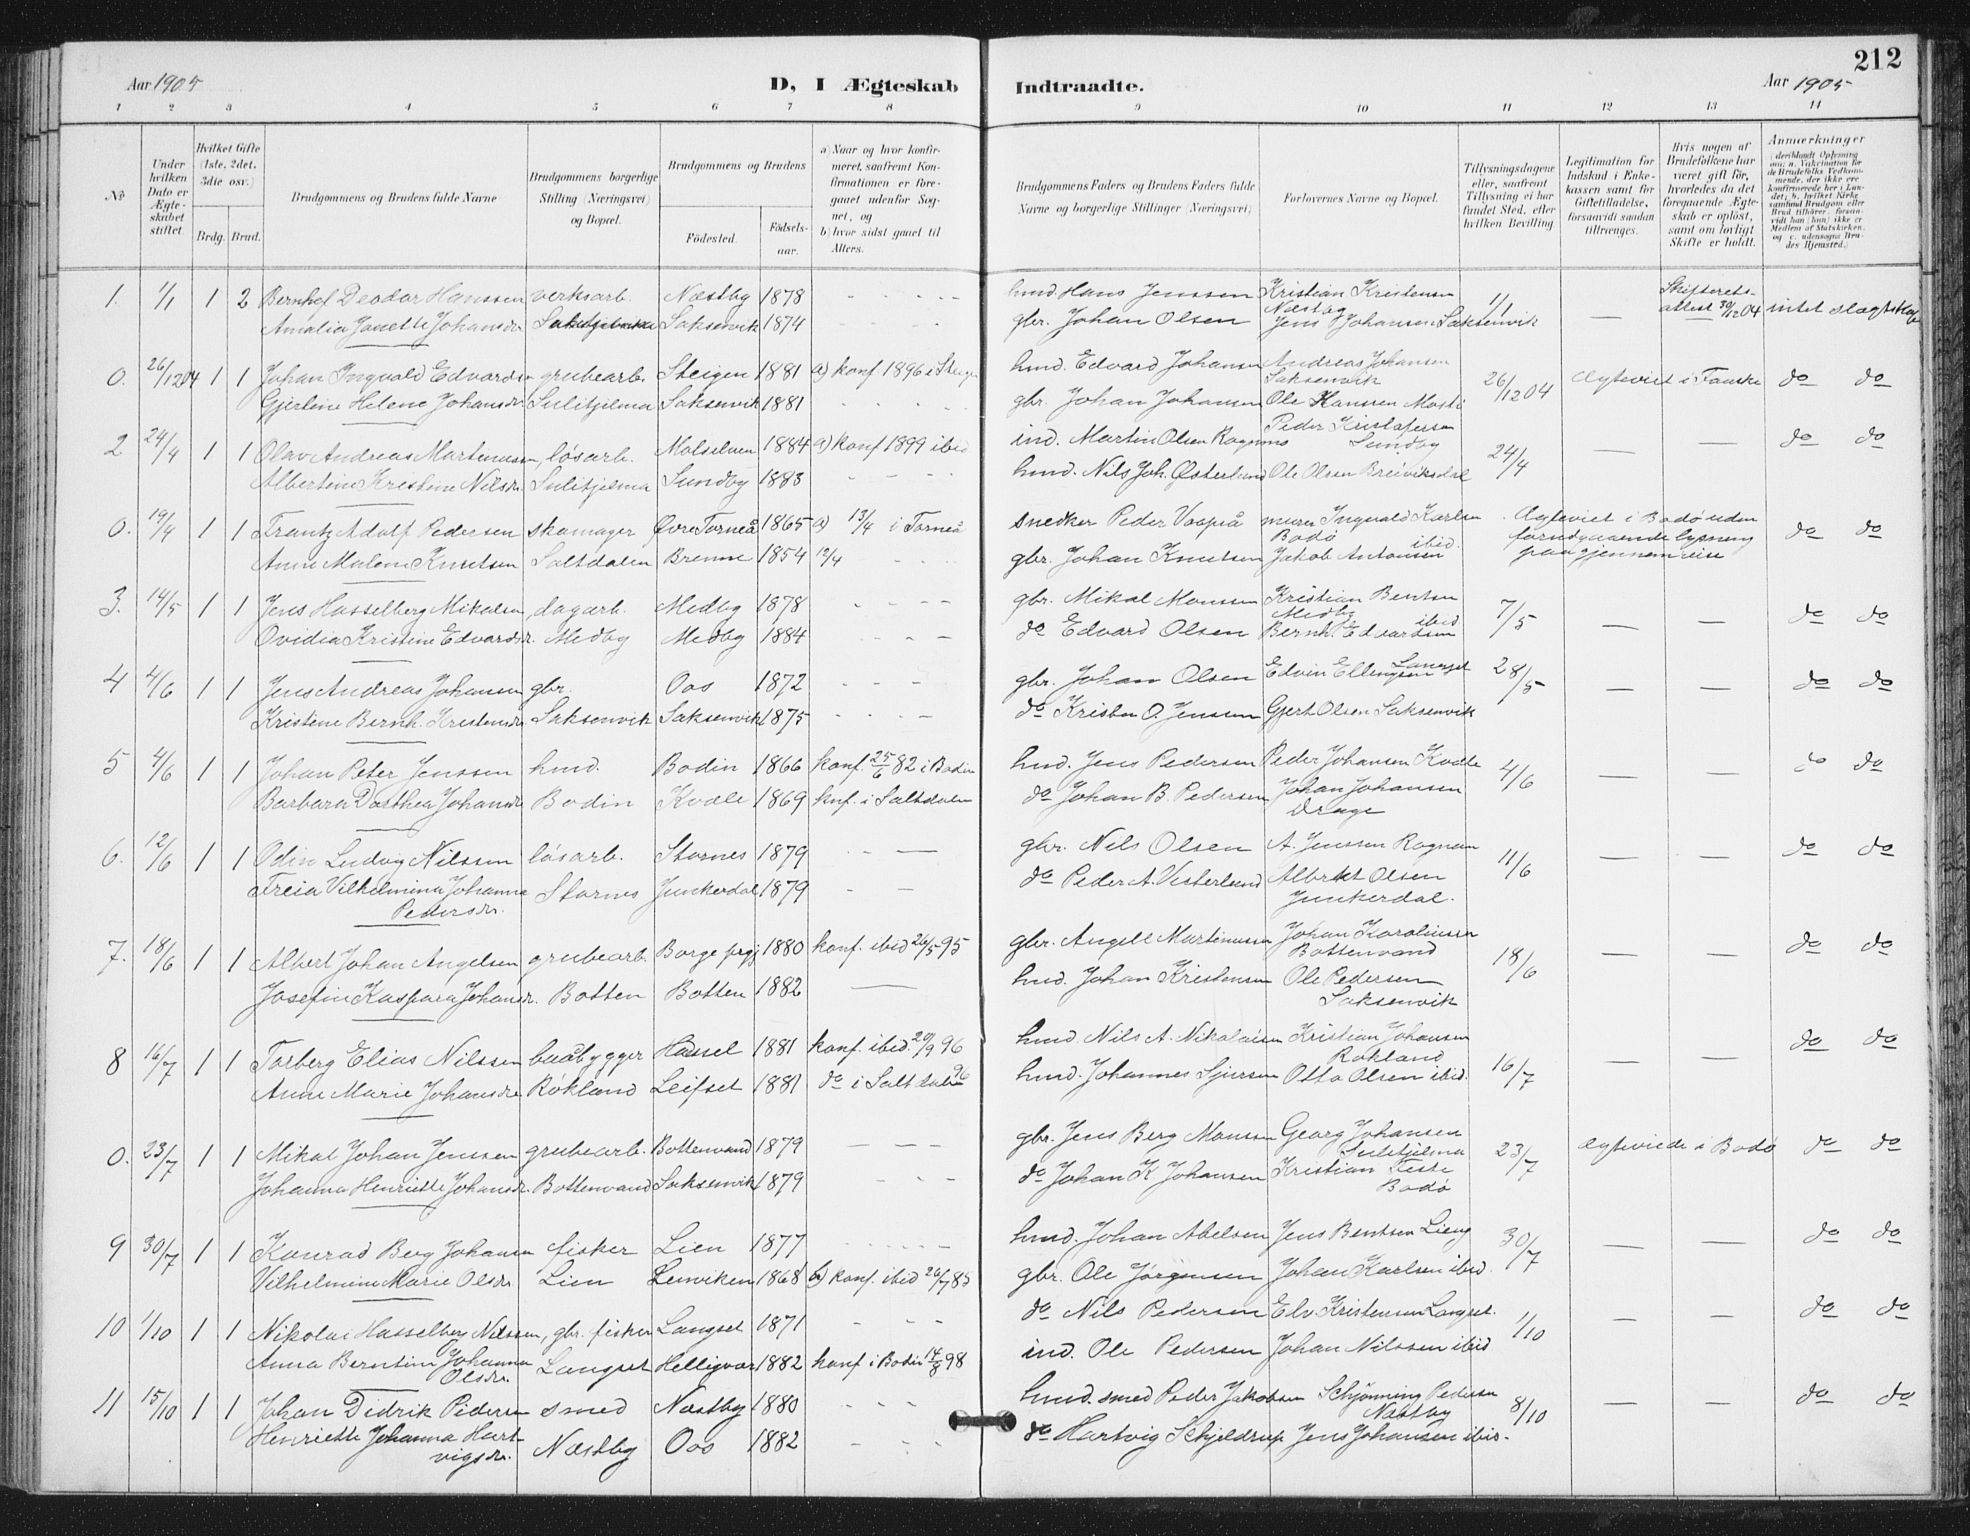 212
Aar 1905
D, I Ægteskab Indtraadte.
Aar 1905
1 2 3 4 5 6 7 8 9 10 11 12 13 14
№
Under hvilken Dato er Ægteskabet stiftet.
Hvilket Gifte (1ste, 2det, 3die osv.)
Brdg. Brud.
Brudgommens og Brudens fulde Navne
Brudgommens borgerlige Stilling (Næringsvei) og Bopæl.
Brudgommens og Brudens
Fødested.
Fødselsaar.
a) Naar og hvor konfirmeret, saafremt Konfirmationen er foregaaet udenfor Sognet, og
b) hvor sidst gaaet til Alters.
Brudgommens Faders og Brudens Faders fulde Navne og borgerlige Stillinger (Næringsvei)
Forlovernes Navne og Bopæl.
Tillysningsdagene eller, saafremt Tillysning ei har fundet Sted, efter hvilken Bevilling
Legitimation for Indskud i Enkekassen samt for Giftetilladelse, forsaavidt saadan tiltrænges.
Hvis nogen af Brudefolkene har været gift før, hvorledes da det foregaaende Ægteskab er opløst, samt om lovligt Skifte er holdt.
Anmærkninger
1. 1/1 1 2 Bernhof Deodor Hanssen verksarb. Næstby 1878 - - - - hmd. Hans Jenssen Kristian Kristensen Næstby 1/1 — Skifterets-attest 30/12 04 intet slægtskap
Amalia Janette Johansdr Saksenvik 1874 - - - - gbr. Johan Olsen Jens Johansen Saksenvik
0. 26/12 04 1 1 Johan Ingvald Edvardsen grubearb. Steigen 1881 a) konf 1896 i Steigen hmd. Edvard Johansen Andreas Johansen Saksenvik 26/12 04 Ægteviet i Fauske do do
Gjertine Helene Johansdr Sulitjelma Saksenvik 1881 - - - - gbr. Johan Johansen Ole Hanssen Mosti
2 24/4 1 1 Olav Andreas Martenussen, løsarb. Molselven 1884 a) konf 1899 ibid ind. Martin Olsen Rognmo Peder Kristofersen Sundby 24/4 — — do do
Albertine Kristine Nilsdr. Sulitjelma Sundby 1883 - - - hmd. Nils Joh. Østerlund Ole Olsen Breiviksdal
0. 19/4 1 1 Frantz Adolf Pedersen skomager Øvre Torneå 1865 a) 13/4 i Torneå snedker Peder Vaapiå murer Ingvald Karlsen Bodø Ægteviet i Bodø uden forudgaaende lysning paa gjennemreise do do
Anne Malene Knutsen Saltdalen Brenne 1854 12/4 - - - gbr. Johan Knutsen Jakob Antonsen ibid.
3. 14/5 1 1 Jens Hasselberg Mikalsen, dagarb. Medby 1878 - - - - gbr. Mikal Monssen Kristian Bentsen Medby 7/5 — — do do
Ovidia Kristine Edvardsdr. Medby Medby 1884 - - - - do Edvard Olsen Bernh. Edvardsen ibid
4 4/6 1 1 Jens Andreas Johansen gbr. Oos 1872 - - - gbr. Johan Olsen Edvin Ellingsen Langset 28/5 — — do do
Kristine Bernh. Kristensdr Saksenvik Saksenvik 1875 - - - - do Kristen O. Jenssen Gjert Olsen Saksenvik
5 4/6 1 1 Johan Peter Jenssen hmd. Bodin 1866 konf. 25/6 82 i Bodin hmd. Jens Pedersen Peder Johansen Kvæle 4/6 — — do do
Barbara Dorthea Johansdr Bodin Kvæle 1869 knf. i Saltdalen do Johan B. Pedersen Johan Johansen Drage
6. 12/6 1 1 Odin Ludvig Nilssen løsarb. Stornes 1879 - - — gbr. Nils Olsen A. Jenssen Rognan 11/6 — — do do
Freia Vilhelmina Johanna Pedersdr. Stornes Junkerdal 1879 - - do Peder A. Vesterlund Albrekt Olsen Junkerdal.
7. 18/6 1 1 Albert Johan Angelsen grubearb. Borge prgj 1880 konf. ibid 26/5 95 gbr. Angell Martinussen Johan Karoliussen Bottenvand 18/6 — — do do
Josefine Kaspara Johansdr. Botten Botten 1882 — hmd. Johan Kristensen Ole Pedersen Saksenvik
8 16/7 1 1 Torberg Elias Nilssen baadbygger Hassel 1881 konf. ibid. 20/9 96 hmd. Nils A. Nikolaisen Kristian Johansen Rokland 16/7 — — do do
Anne Marie Johansdr. Røkland Leifset 1881 do i Saltdalen 96 hmd. Johannes Sjursen Otto Olsen ibid.
0. 23/7 1 1 Mikal Johan Jenssen grubearb. Bottenvand 1879 - - - gbr. Jens Berg Monssen Georg Johansen Sulitjelma 23/7 ægteviede i Bodø do do
Johanna Henriette Johansdr. Bottenvand Saksenvik 1879 - - - do Johan K Johansen Kristian Feste Bodø
9 30/7 1 1 Konrad Berg Johansen fisker Lien 1877 - - - - hmd. Johan Abelsen Jens Bentsen Lieng 30/7 — — do do
Vilhelmine Marie Olsdr. Lien Lenviken 1868 a) konf. ibid 26/7 85 gbr. Ole Jørgensen Johan Karlsen ibid.
10 1/10 1 1 Nikolai Hasselberg Nilssen, gbr. fisker Langset 1871 - - - do Nils Pedersen Elv. Kristensen Langset. 1/10 — — do do
Anna Berntine Johanna Olsdr. Langset Helligvær 1882 konf i Bodin 14/8 98 ind. Ole Pedersen Johan Nilssen ibid
11 15/10 1 1 Johan Didrik Pedersen smed Næstby 1880 - - - hmd. smed Peder Jakobsen Schjønning Pedersen Næstby 8/10 — — do do
Henriette Johanna Hartvigsdr. Næstby Oos 1882 - - - do Hartvig Schjeldrup Jens Johansen ibid.